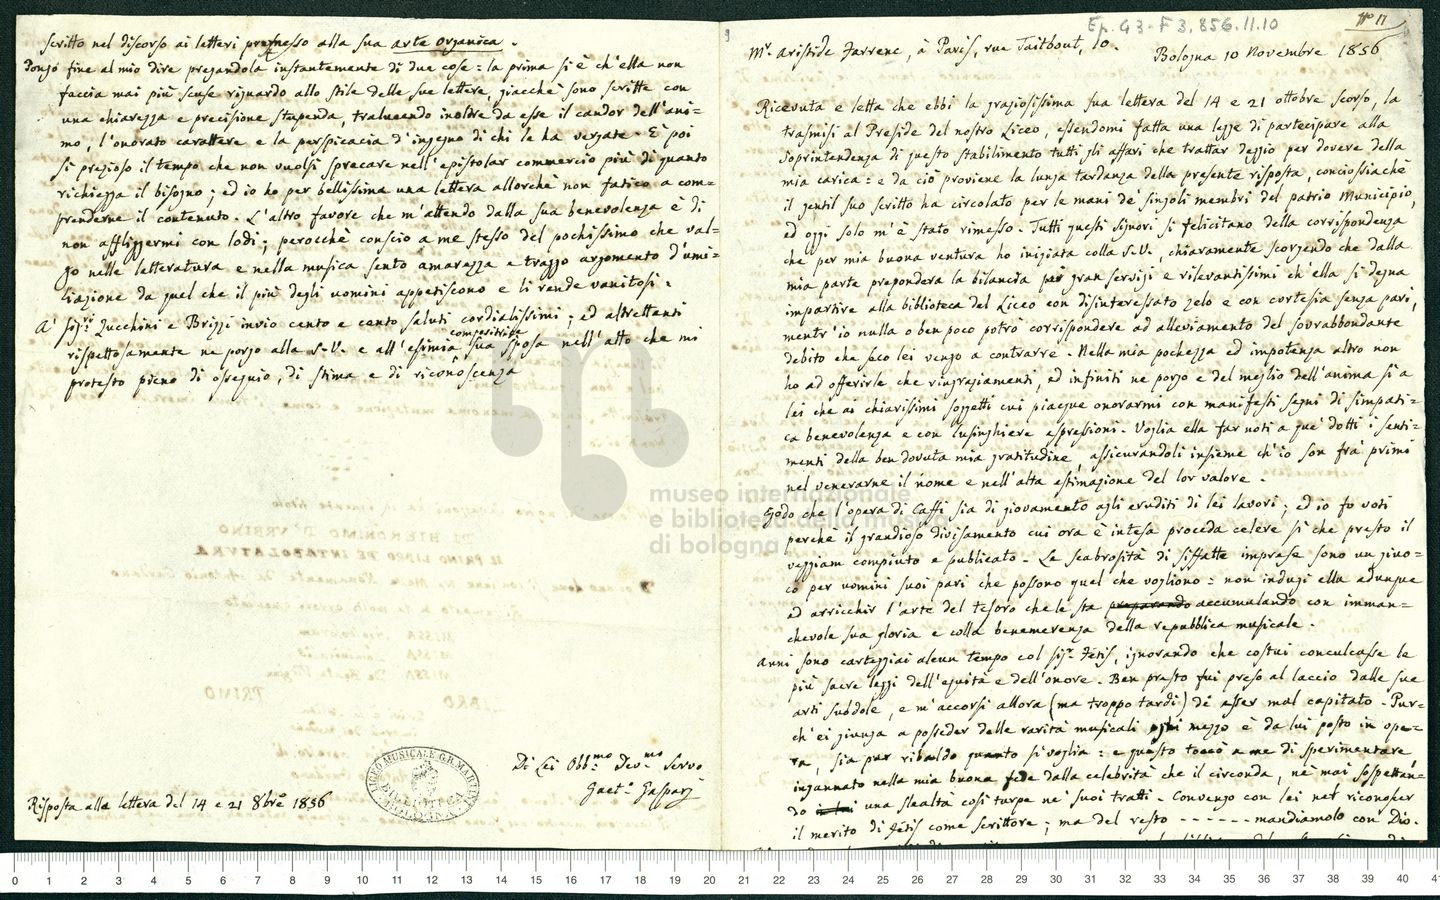 scritto nel discorso ai lettori premesso alla sua arte organica.
Pongo fine al mio dire pregandola instantemente di due cose: la prima si è ch'ella non
faccia mai più scuse riguardo allo stile delle sue lettere, giacchè sono scritte con
una chiarezza e precisione stupenda, tralucendo inoltre da esse il candor dell'ani=
mo, l'onorato carattere e la perspicacia d'ingegno di chi le ha vergate. È poi
sì prezioso il tempo che non vuolsi sprecare nell'epistolar commercio più di quanto
richiegga il bisogno; ed io ho per bellissima una lettera allorchè non fatico a com=
prenderne il contenuto. L'altro favore che m'attendo dalla sua benevolenza è di
non affliggermi con lodi; perocchè conscio a me stesso del pochissimo che val=
go nella letteratura e nella musica sento amarezza e traggo argomento d'umi=
liazione da quel che il più degli uomini appetiscono e li rende vanitosi.
A' Sigri Zucchini e Brizzi invio cento e cento saluti cordialissimi; ed altrettanti
rispettosamente ne porgo alla S.V. e all'esimia compositrice sua sposa nell'atto che mi
protesto pieno di ossequio, di stima e di riconoscenza
Di Lei Obbmo Devmo Servo
Gaeto Gasparj
Risposta alla lettera del 14 e 21 8bre 1856
LICEO MUSICALE G.B. MARTINI
BIBLIOTECA
BOLOGNA
Ep. G3-F3,856.11.10
No 11
9
Mr. Aristide Farrenc, à Paris, rue Taitbout, 10.
Bologna 10 Novembre 1856
Ricevuta e letta che ebbi la graziosissima sua lettera del 14 e 21 ottobre scorso, la
trasmisi al Preside del nostro Liceo, essendomi fatta una legge di partecipare alla
Soprintendenza di questo stabilimento tutti gli affari che trattar deggio per dovere della
mia carica: e da ciò proviene la lunga tardanza della presente risposta, conciossiachè
il gentil suo scritto ha circolato per le mani de' singoli membri del patrio Municipio,
ed oggi solo m'è stato rimesso. Tutti questi signori si felicitano della corrispondenza
che per mia buona ventura ho iniziata colla S.V., chiaramente scorgendo che dalla
mia parte prepondera la bilancia per gran servigi e rilevantissimi ch'ella si degna
impartire alla biblioteca del Liceo con disinteressato zelo e con cortesia senza pari,
mentr'io nulla o ben poco potrò corrispondere ad alleviamento del sovrabbondante
debito che seco lei vengo a contrarre. Nella mia pochezza ed impotenza altro non
ho ad offerirle che ringraziamenti, ed infiniti ne porgo e del meglio dell'anima sì a
lei che ai chiarissimi soggetti cui piacque onorarmi con manifesti segni di simpati=
ca benevolenza e con lusinghiere espressioni. Voglia ella far noti a que' dotti i senti=
menti della ben dovuta mia gratitudine, assicurandoli insieme ch'io son fra' primi
nel venerarne il nome e nell'alta estimazione del lor valore.
Godo che l'opera di Caffi sia di giovamento agli eruditi di lei lavori; ed io fo voti
perchè il grandioso divisamento cui ora è intesa proceda celere sì che presto il
veggiam compiuto e publicato. Le scabrosità di siffatte imprese sono un giuo=
co per uomini suoi pari che possono quel che vogliono: non indugi ella adunque
ad arricchir l'arte del tesoro che le sta preparando accumulando con imman=
chevole sua gloria e colla benemerenza della repubblica musicale.
Anni sono carteggiai alcun tempo col Sigr. Fétis, ignorando che costui conculcasse le
più sacre leggi dell'equità e dell'onore. Ben presto fui preso al laccio dalle sue
arti subdole, e m'accorsi allora (ma troppo tardi) di esser mal capitato. Pur=
ch'ei giunga a posseder delle rarità musicali ogni mezzo è da lui posto in ope=
ra, sia pur ribaldo quanto si voglia: e questo toccò a me di sperimentare
ingannato nella mia buona fede dalla celebrità che il circonda, nè mai sospettan=
do una slealtà così turpe ne' suoi tratti. Convengo con lei nel riconoscer
il merito di Fétis come scrittore; ma del resto - - - - - - - mandiamolo con Dio.
museo internazionale
e biblioteca della musica
di bologna
0 1 2 3 4 5 6 7 8 9 10 11 12 13 14 15 16 17 18 19 20 21 22 23 24 25 26 27 28 29 30 31 32 33 34 35 36 37 38 39 40 41